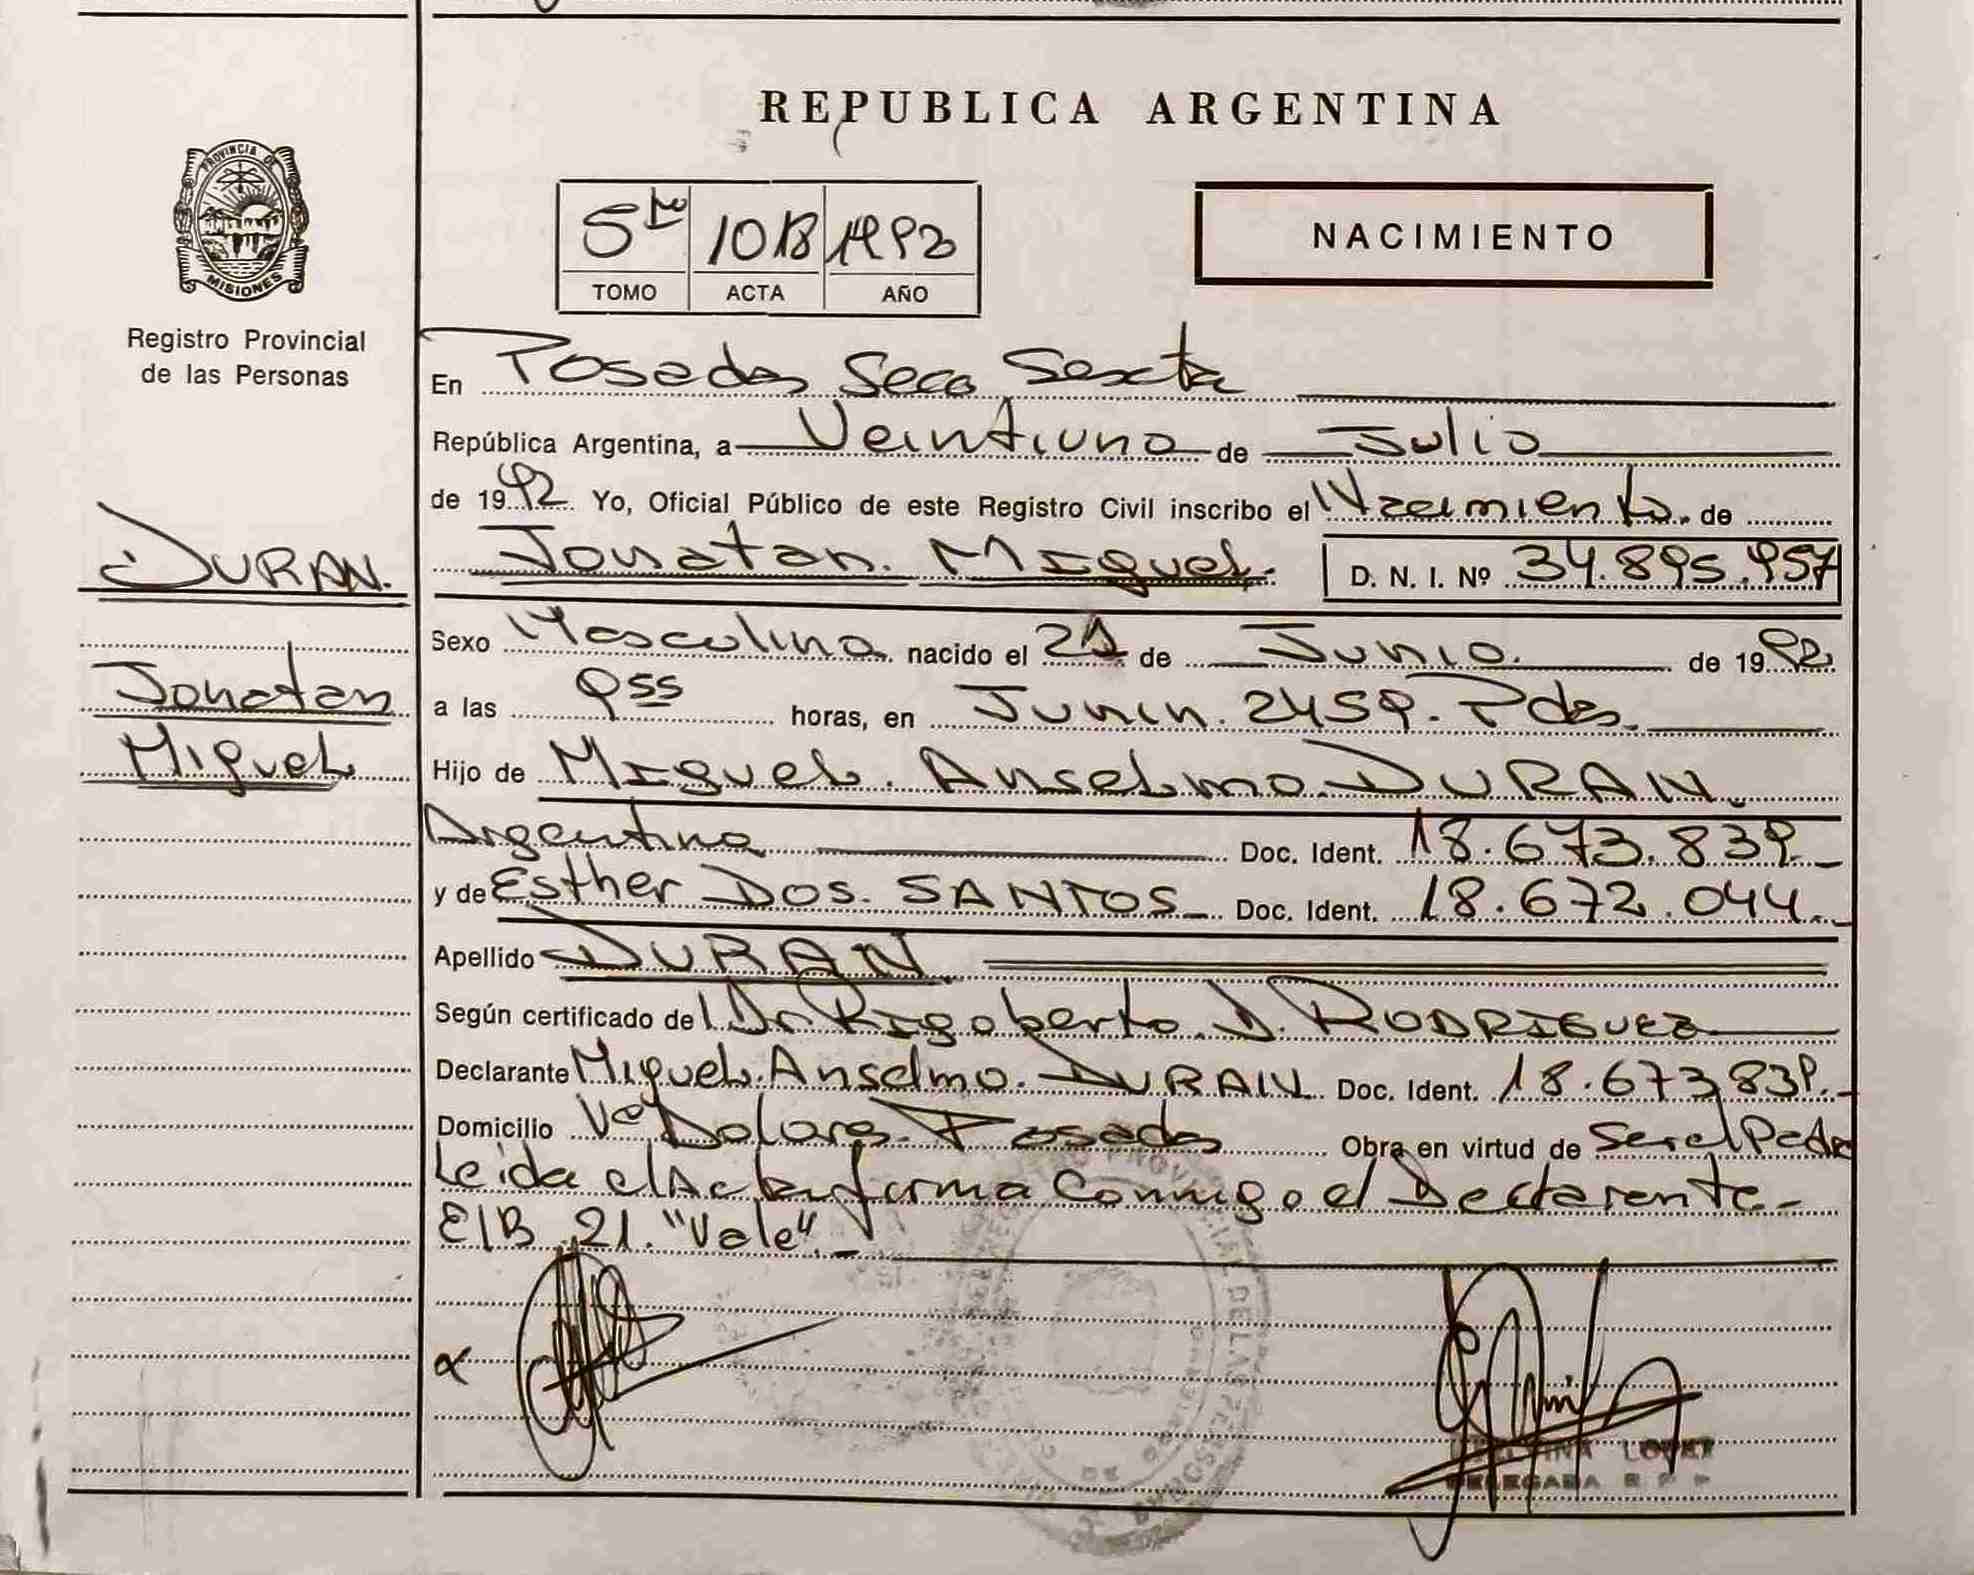 REPUBLICA ARGENTINA
PROVINCIA DE
MISIONES
Registro Provincial
de las Personas
5to 1018 1992
TOMO ACTA AÑO
NACIMIENTO
En Posadas Secc Sexta
República Argentina, a Veintiuno de Julio
de 1992 Yo, Oficial Público de este Registro Civil inscribo el Nacimiento de
Jonatan Miguel D. N. I. Nº 34.895.957
DURAN.
Jonatan
Miguel
Sexo Masculino nacido el 21 de Junio. de 1992.
a las 9 55 horas, en Junin. 2459. Pdas.
Hijo de Miguel. Anselmo DURAN.
Argentino Doc. Ident. 18.673.839.
y de Esther DOS. SANTOS Doc. Ident. 18.672.044.
Apellido DURAN
Según certificado del Dr Rigoberto. D. RODRIGUEZ
Declarante Miguel. Anselmo. DURAN Doc. Ident. 18.673.839.
Domicilio Va Dolores. Posadas Obra en virtud de Ser el Padre
Leida el Acta firma Conmigo el Declarante.
E/B 21. "Vale".
LOPEZ
DELEGADA R P P